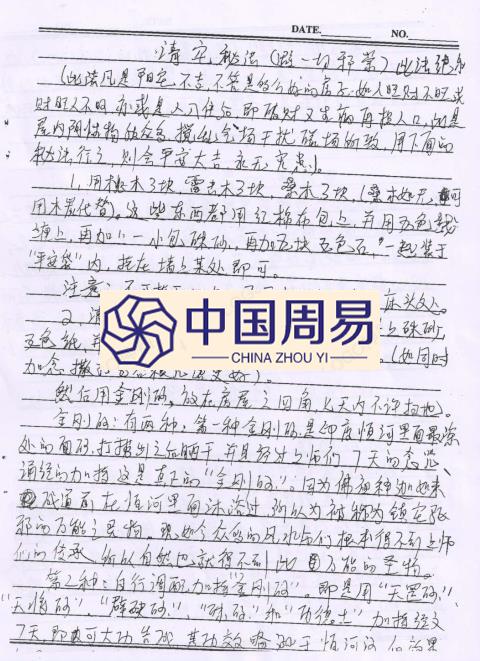 DATE. NO.
清宅秘法(做一切邪祟)此法
(此法凡是阳宅,不吉,不管是什么的房子,如人旺财不旺或
财旺人不旺,亦或是人入住后即破财又生病再损人口,此是
屋内阴性物质众多,搅乱气场干扰磁场所致,用下面的
秘法行之,则会平安大吉,永无危患)。
1,用桃木3块,雷击木3块,桑木3块,(桑木如无,可
用木炭代替)。这些东西都用红棉布包上,并用五色线
缠上,再加以一小包硃砂,再加五块五色石,一起装于
"平安袋"内,挂在墙上某处即可。
注意: 床头处。
2,清 上硃砂,
五色纸, (如同时
加念
中国周易
CHINA ZHOU YI
然后用金刚砂,放在房屋之四角七天内不许扫地)。
金刚砂:有两种,第一种金刚砂是印度恒河里面最深
处的面砂,打捞出之后晒干并且经过上师们7天的念咒、
诵经的加持这是真正的"金刚砂"。因为佛祖释迦如来
成道前在恒河里面沐浴过,所以为被称为镇宅驱
邪的万能之圣物。现如今众多的风水师们根本得不到上师
们的传承,所以自然也就得不到此万能的圣物。
第二种:自行调配,加持"金刚砂"。即是用"天罡砂"
"天恒砂"、"辟破砂"、"硃砂"和"功德土"加持经文
7天即可大功告成,其功效略逊于恒河沙,但效果